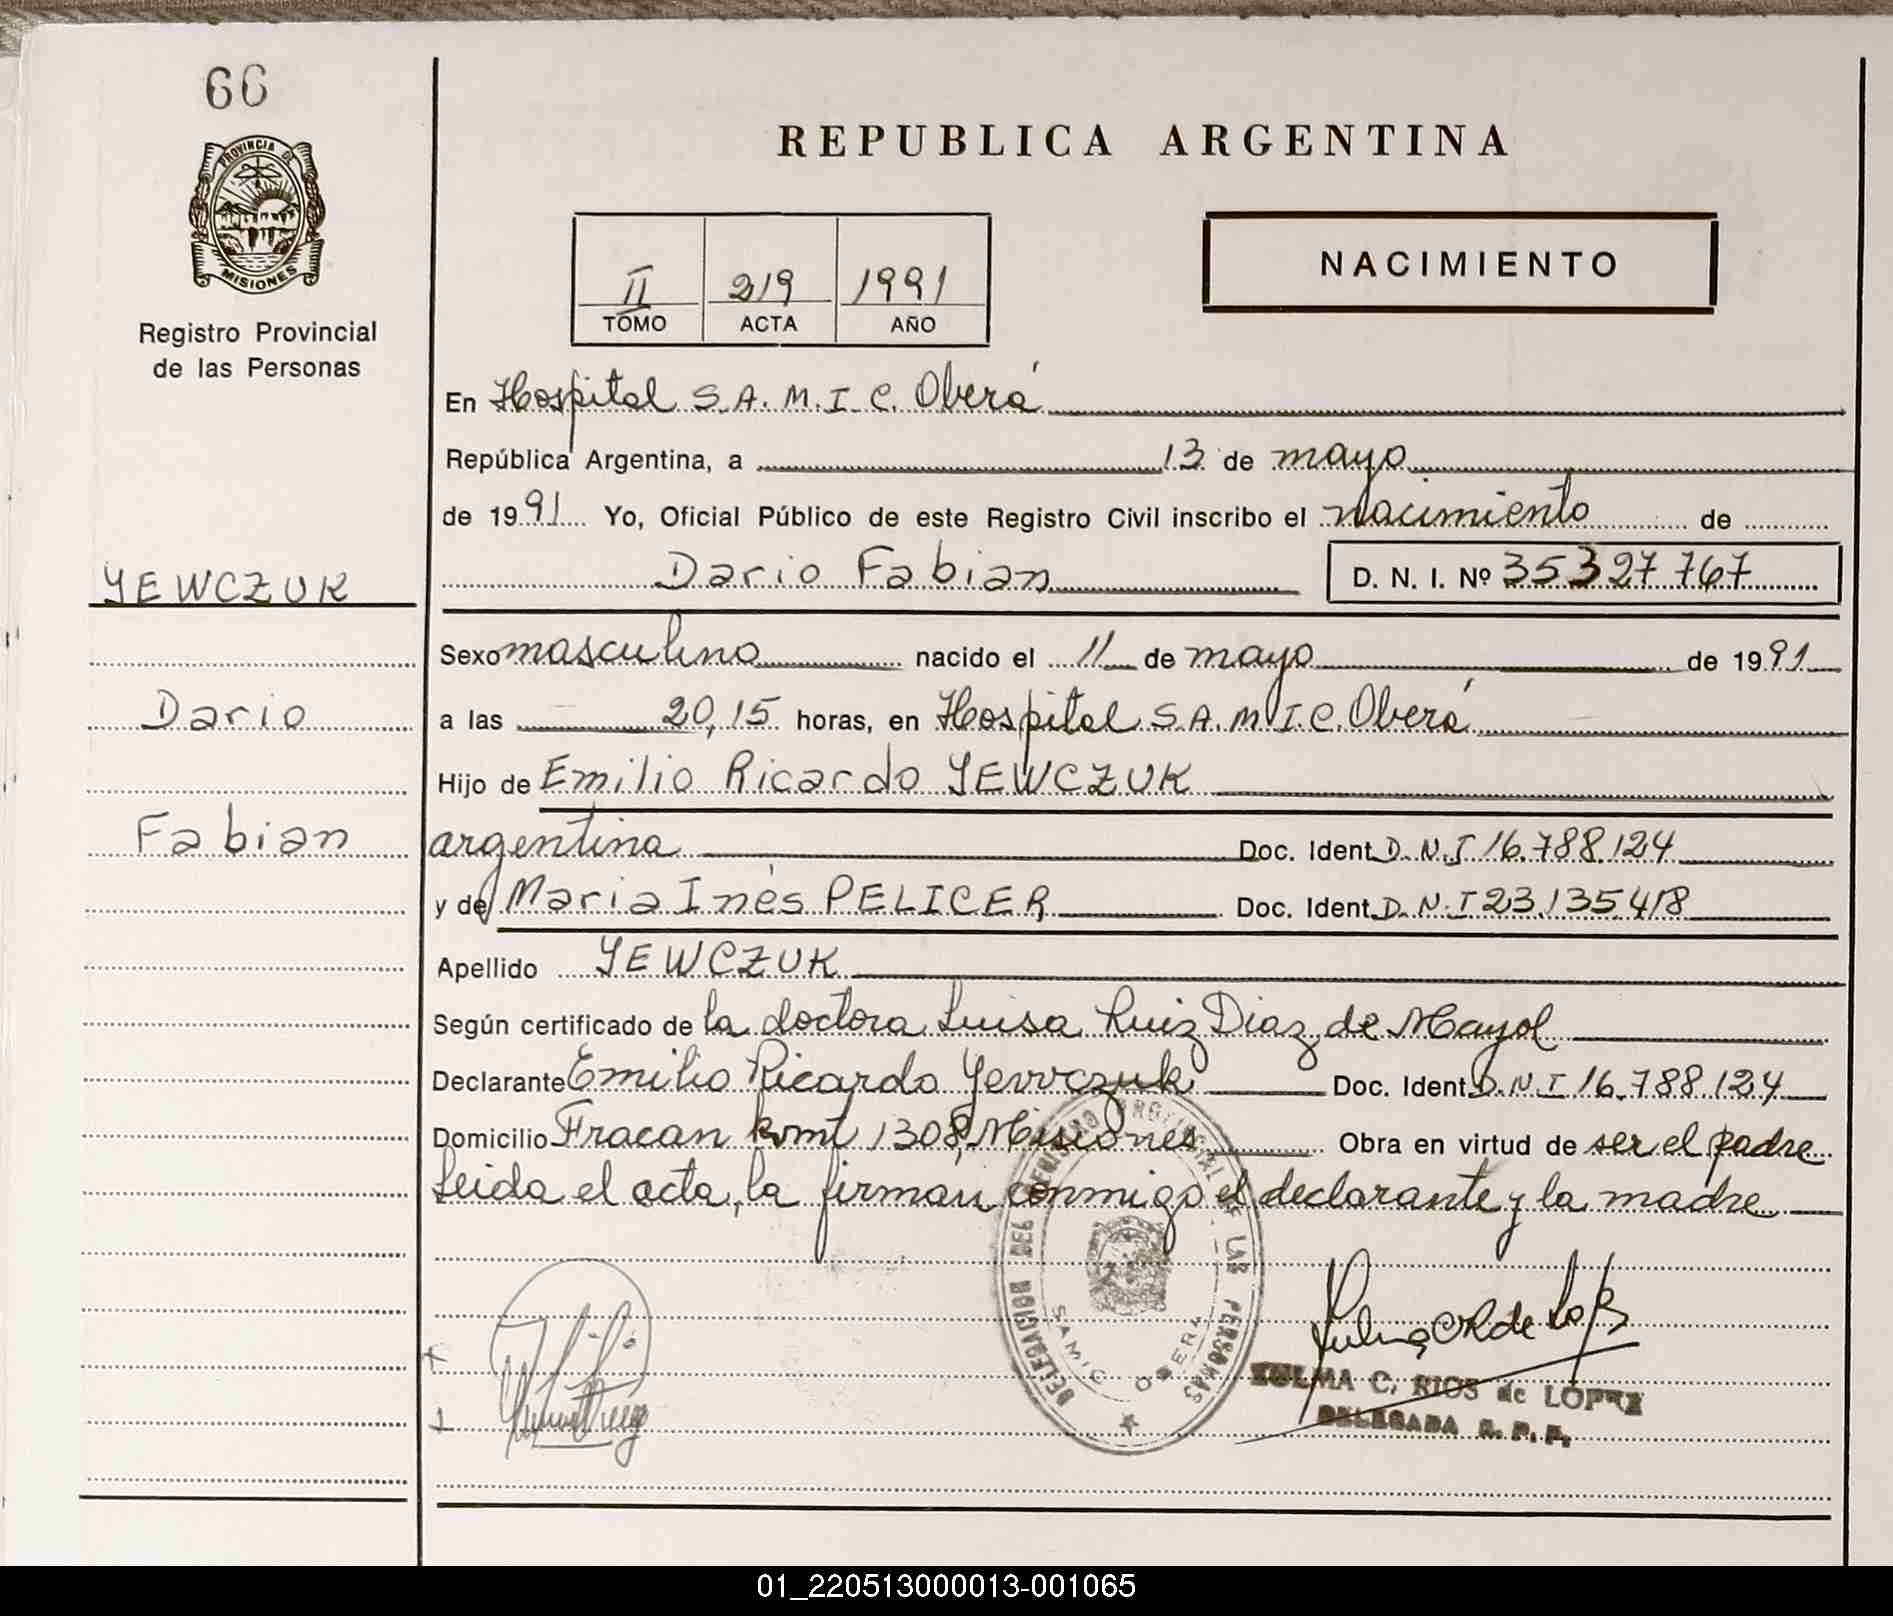 66
PROVINCIA DE
MISIONES
Registro Provincial
de las Personas
REPUBLICA ARGENTINA
II 219 1991
TOMO ACTA AÑO
NACIMIENTO
En Hospital S.A.M.I.C. Oberá
República Argentina, a 13 de mayo
de 1991 Yo, Oficial Público de este Registro Civil inscribo el nacimiento de
Dario Fabian D. N. I. Nº 35327767
YEWCZUK
Dario
Fabian
Sexo masculino nacido el 11 de mayo de 1991
a las 20,15 horas, en Hospital S.A.M.I.C. Oberá
Hijo de Emilio Ricardo YEWCZUK
argentina Doc. Ident. D.N.I 16.788.124
y de Maria Inés PELICER Doc. Ident. D.N.I 23.135.418
Apellido YEWCZUK
Según certificado de la doctora Luisa Ruiz Diaz de Mayol
Declarante Emilio Ricardo Yewczuk Doc. Ident. D.N.I 16.788.124
Domicilio Fracan kmt 1308, Misiones Obra en virtud de ser el padre
Leida el acta, la firman conmigo el declarante y la madre
DELEGACION DEL REGISTRO PROVINCIAL DE LAS PERSONAS
SAMIC OBERA
ZULMA C. RIOS de LOPEZ
DELEGADA R. P. P.
01_220513000013-001065